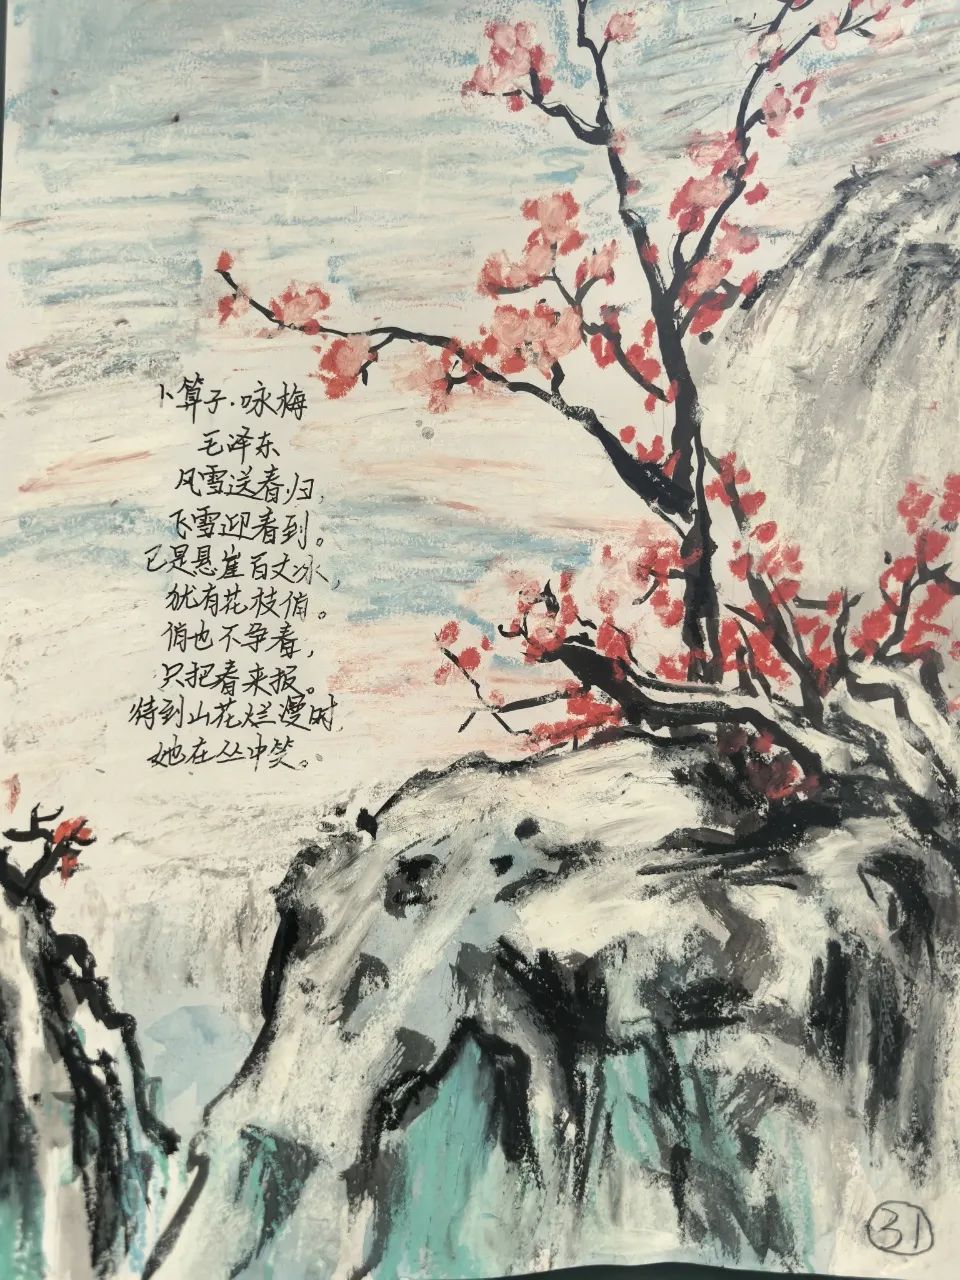 卜算子·咏梅
毛泽东
风雪送春归，
飞雪迎春到。
已是悬崖百丈冰，
犹有花枝俏。
俏也不争春，
只把春来报。
待到山花烂漫时
她在丛中笑。
31